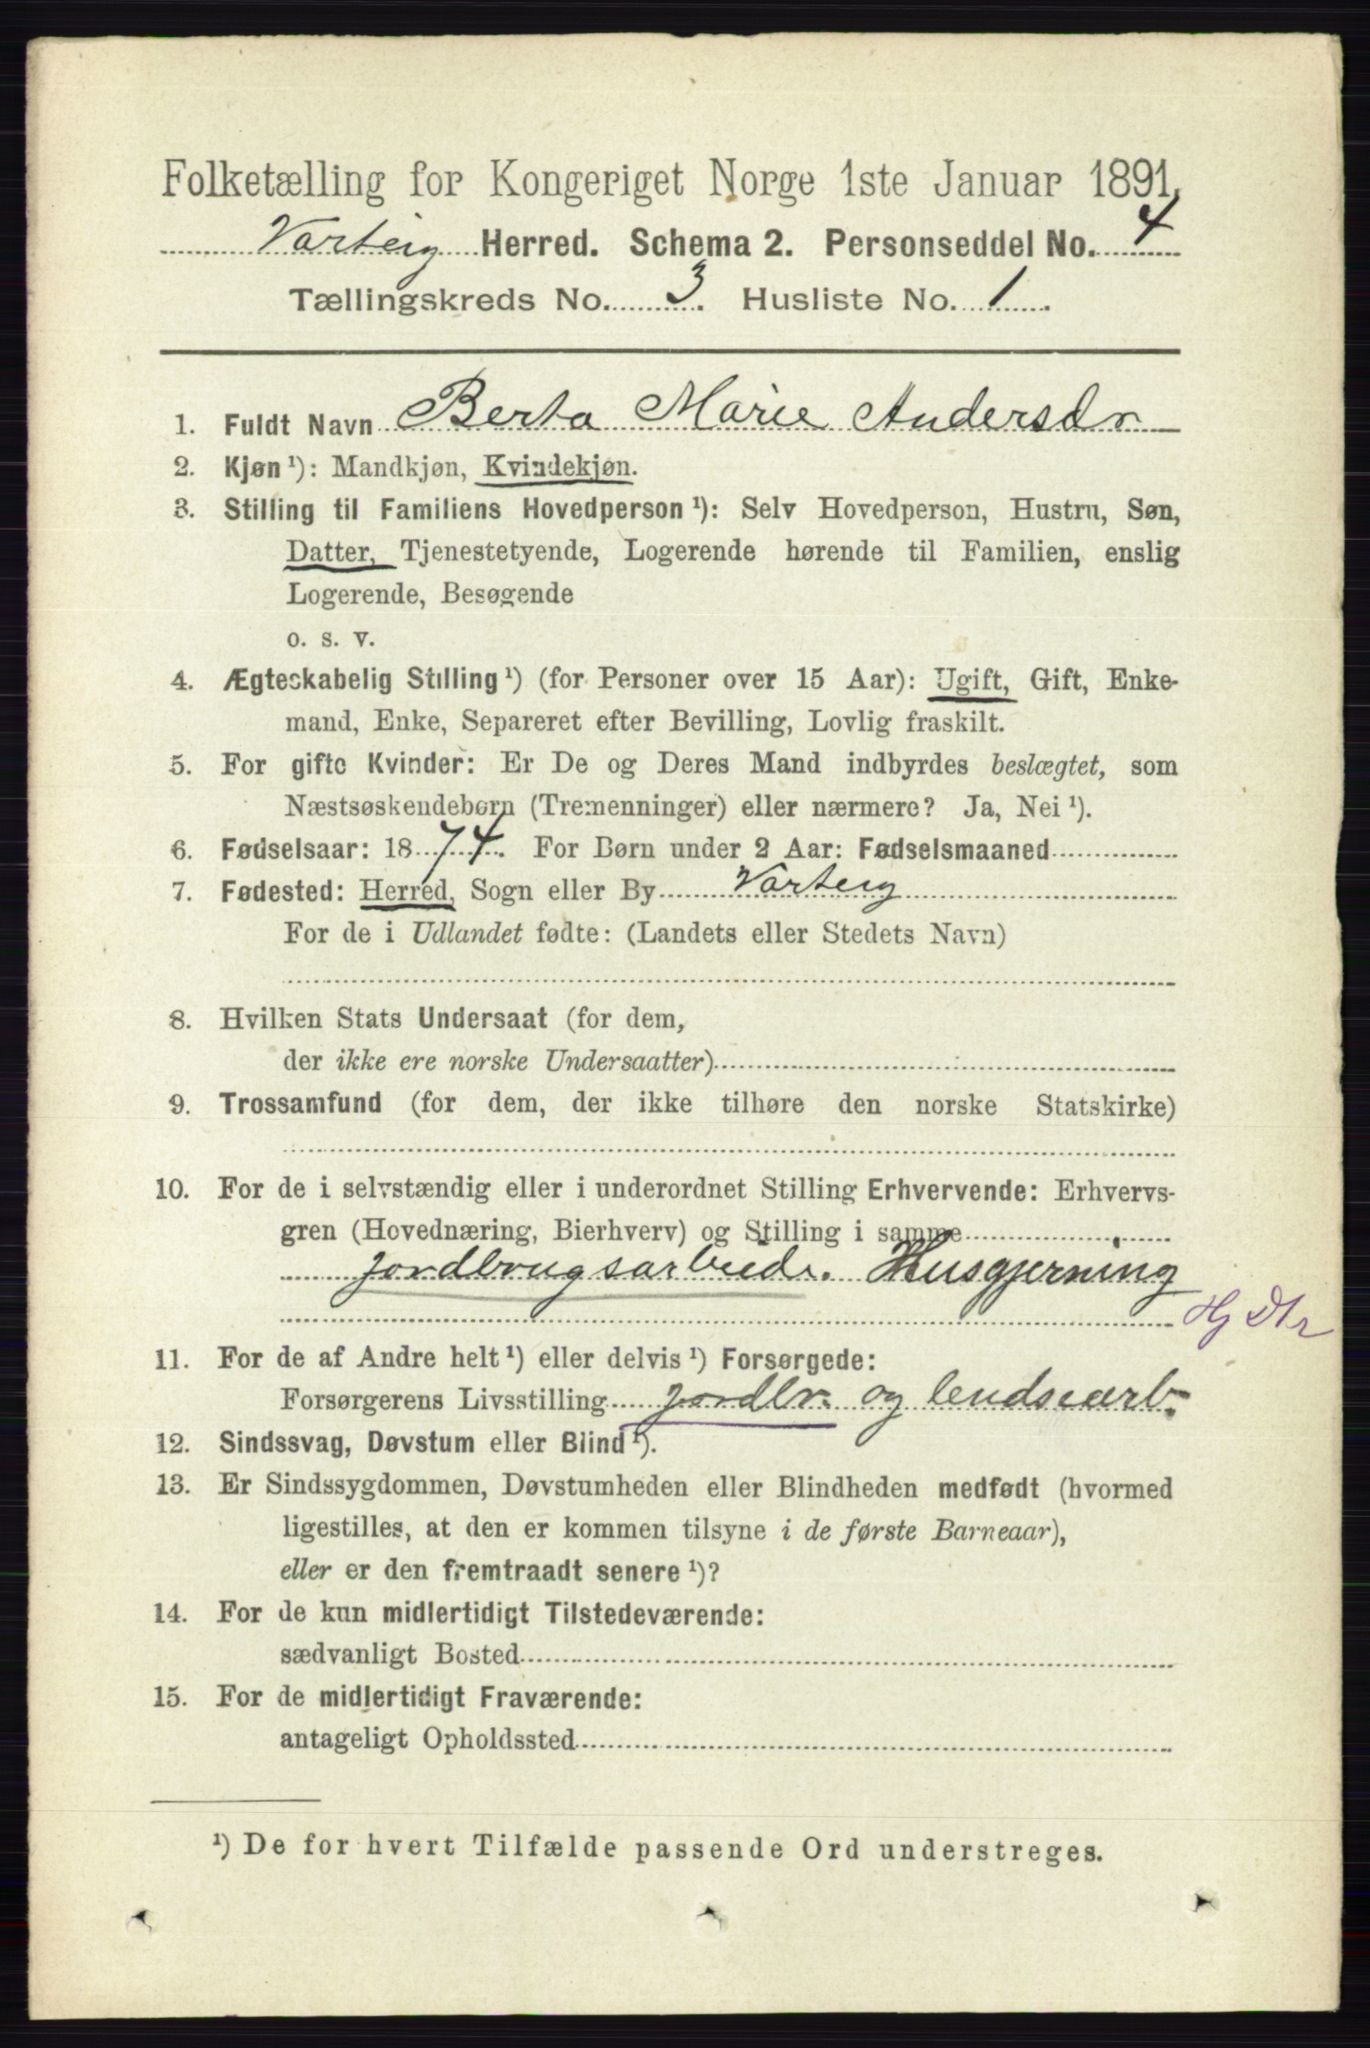 Folketælling for Kongeriget Norge 1ste Januar 1891.
Varteig Herred. Schema 2. Personseddel No. 4
Tællingskreds No. 3. Husliste No. 1.
1. Fuldt Navn Berta Marie Andersdr
2. Kjøn ¹): Mandkjøn, Kvindekjøn.
3. Stilling til Familiens Hovedperson ¹): Selv Hovedperson, Hustru, Søn,
Datter, Tjenestetyende, Logerende hørende til Familien, enslig
Logerende, Besøgende
o. s. v.
4. Ægteskabelig Stilling ¹) (for Personer over 15 Aar): Ugift, Gift, Enke-
mand, Enke, Separeret efter Bevilling, Lovlig fraskilt.
5. For gifte Kvinder: Er De og Deres Mand indbyrdes beslægtet, som
Næstsøskendebørn (Tremenninger) eller nærmere? Ja, Nei ¹).
6. Fødselsaar: 1874. For Børn under 2 Aar: Fødselsmaaned
7. Fødested: Herred, Sogn eller By Varteig
For de i Udlandet fødte: (Landets eller Stedets Navn)
8. Hvilken Stats Undersaat (for dem,
der ikke ere norske Undersaatter)
9. Trossamfund (for dem, der ikke tilhøre den norske Statskirke)
10. For de i selvstændig eller i underordnet Stilling Erhvervende: Erhvervs-
gren (Hovednæring, Bierhverv) og Stilling i samme
jordbrugsarbeide. Husgjerning
Hj Dtr
11. For de af Andre helt ¹) eller delvis ¹) Forsørgede:
Forsørgerens Livsstilling jordbr. og
12. Sindssvag, Døvstum eller Blind ¹).
13. Er Sindssygdommen, Døvstumheden eller Blindheden medfødt (hvormed
ligestilles, at den er kommen tilsyne i de første Barneaar),
eller er den fremtraadt senere ¹)?
14. For de kun midlertidigt Tilstedeværende:
sædvanligt Bosted
15. For de midlertidigt Fraværende:
antageligt Opholdssted
¹) De for hvert Tilfælde passende Ord understreges.